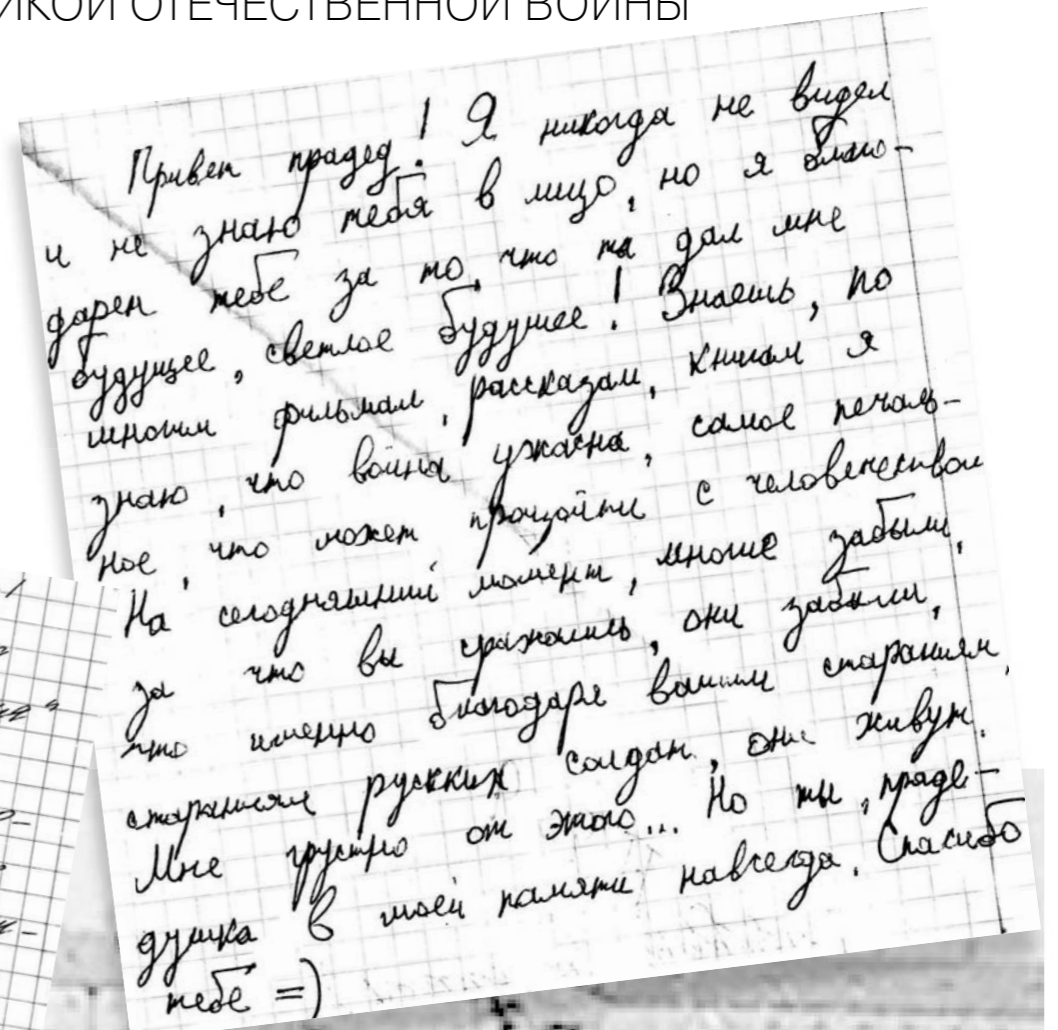 ИКОЙ ОТЕЧЕСТВЕННОЙ ВОЙНЫ
Привет прадед! Я никогда не видел
и не знаю тебя в лицо, но я благо-
дарен тебе за то, что ты дал мне
будущее, светлое будущее! Знаешь, по
многим фильмам, рассказам, книгам я
знаю, что война ужасна, самое печаль-
ное, что может произойти с человечеством
На сегодняшний момент, многие забыли,
за что вы сражались, они забыли,
что именно благодаря вашим стараниям,
стараниям русских солдат, они живут.
Мне грустно от этого... Но ты, праде-
душка в моей памяти навсегда. Спасибо
тебе =)